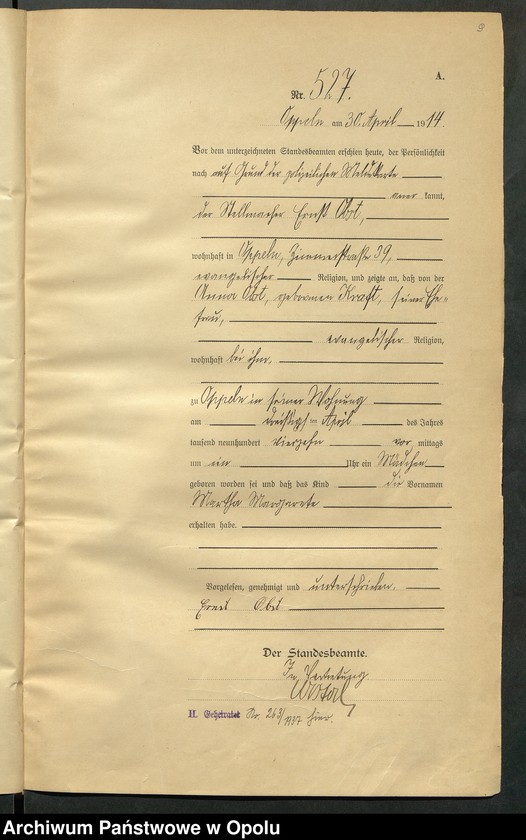 9
A.
Nr. 527.
Oppeln am 30. April 1914.
Vor dem unterzeichneten Standesbeamten erschien heute, der Persönlichkeit
nach auf Grund der polizeilichen Meldekarte
aner kannt,
der Stellmacher Ernst Obst,
wohnhaft in Oppeln, Zimmerstraße 39,
evangelischer Religion, und zeigte an, daß von der
Anna Obst, geborenen Kraft, seiner Ehe-
frau,
evangelischer Religion,
wohnhaft bei ihm,
zu Oppeln in seiner Wohnung
am dreißigsten April des Jahres
tausend neunhundert vierzehn vor mittags
um ein Uhr ein Mädchen
geboren worden sei und daß das Kind die Vornamen
Martha Margarete
erhalten habe.
Vorgelesen, genehmigt und unterschrieben.
Ernst Obst
Der Standesbeamte.
In Vertretung
H. Geheiratet Nr. 263/1937 hier.
Archiwum Państwowe w Opolu